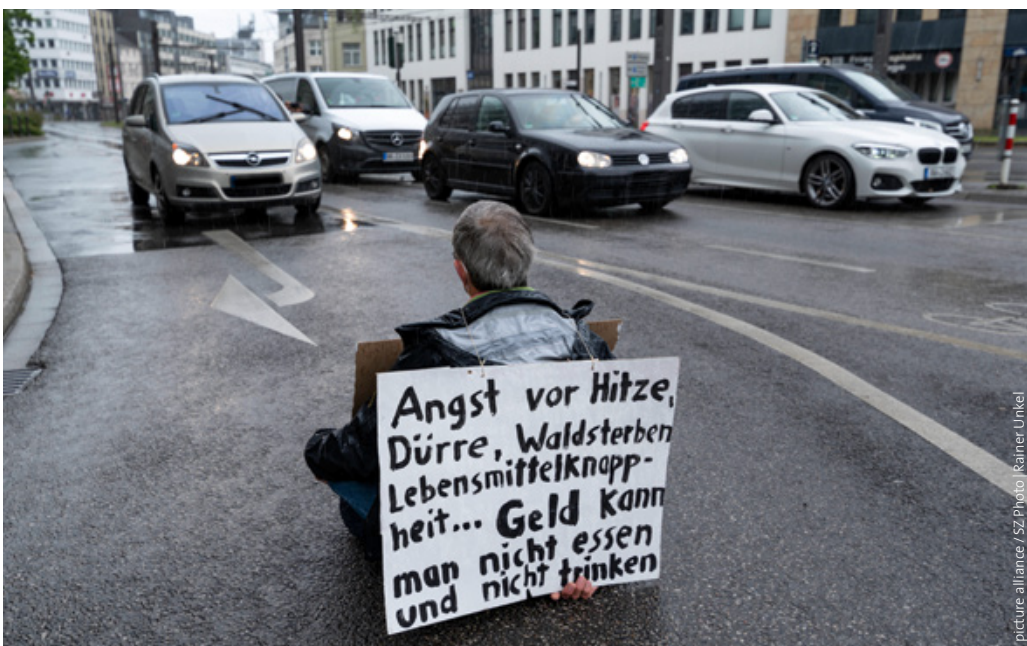 Angst vor Hitze,
Dürre, Waldsterben
Lebensmittelknapp-
heit... Geld kann
man nicht essen
und nicht trinken
picture alliance / SZ Photo | Rainer Unkel